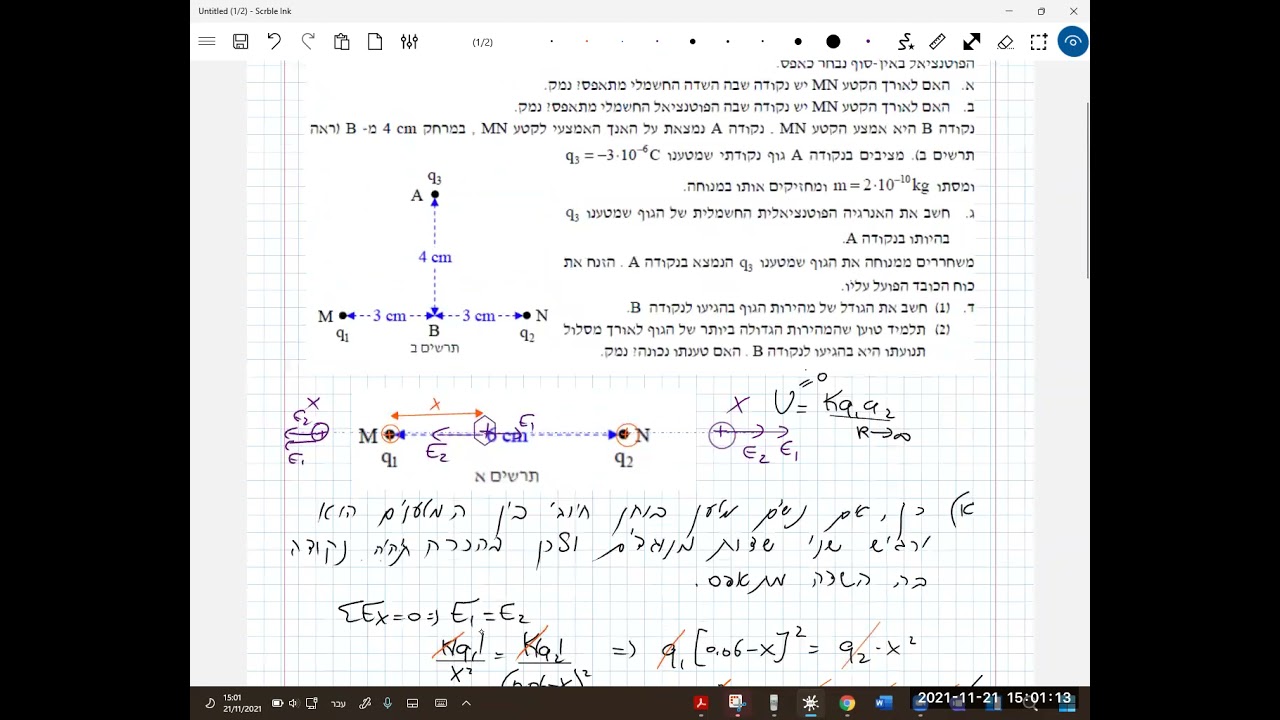 Untitled (1/2) - Scrble Ink
(1/2)
הפוטנציאל באין-סוף נבחר כאפס.
א. האם לאורך הקטע MN יש נקודה שבה השדה החשמלי מתאפס? נמק.
ב. האם לאורך הקטע MN יש נקודה שבה הפוטנציאל החשמלי מתאפס? נמק.
נקודה B היא אמצע הקטע MN . נקודה A נמצאת על האנך האמצעי לקטע MN , במרחק 4 cm מ- B (ראה
תרשים ב). מציבים בנקודה A גוף נקודתי שמטענו q₃ = −3·10⁻⁶C
ומסתו m = 2·10⁻¹⁰kg ומחזיקים אותו במנוחה.
ג. חשב את האנרגיה הפוטנציאלית החשמלית של הגוף שמטענו q₃
בהיותו בנקודה A.
משחררים ממנוחה את הגוף שמטענו q₃ הנמצא בנקודה A . הזנח את
כוח הכובד הפועל עליו.
ד. (1) חשב את הגודל של מהירות הגוף בהגיעו לנקודה B.
(2) תלמיד טוען שהמהירות הגדולה ביותר של הגוף לאורך מסלול
תנועתו היא בהגיעו לנקודה B . האם טענתו נכונה? נמק.
q₃
A
4 cm
M 3 cm 3 cm N
q₁ B q₂
תרשים ב
x E₂ E₁
M x E₂ E₁ 6 cm N
q₁ q₂
תרשים א
x E₂ E₁
U = Kq₁q₂ / R→∞ = 0
א) כן, אם נשים מטען בוחן חיובי בין המטענים הוא
ירגיש שני שדות מנוגדים ולכן בהכרח תהיה נקודה
בה השדה מתאפס.
ΣEx=0 => E₁=E₂
Kq₁/x² = Kq₂/(0.06-x)² => q₁[0.06-x]² = q₂·x²
15:01
21/11/2021
עבר
2021-11-21 15:01:13